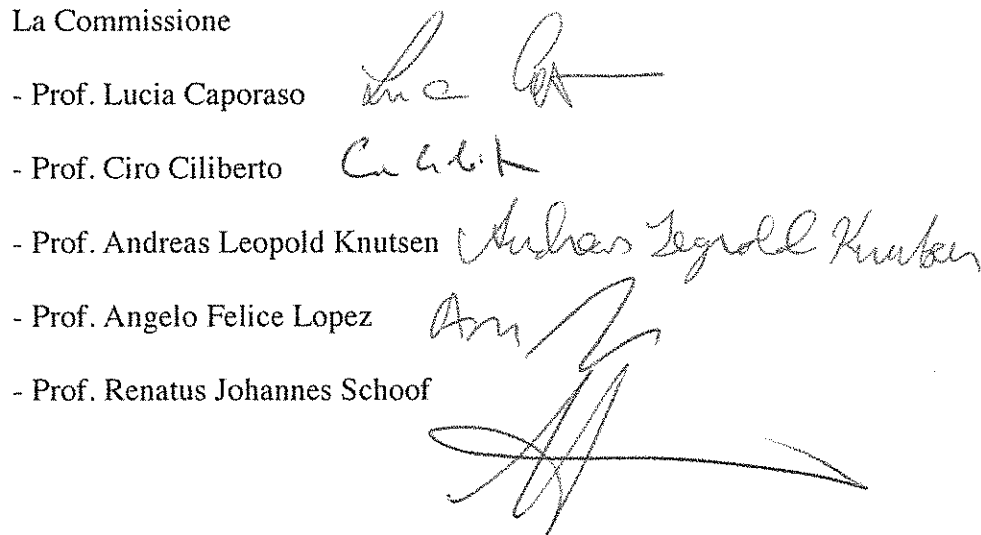 La Commissione
- Prof. Lucia Caporaso
- Prof. Ciro Ciliberto
- Prof. Andreas Leopold Knutsen Andreas Leopold Knutsen
- Prof. Angelo Felice Lopez
- Prof. Renatus Johannes Schoof